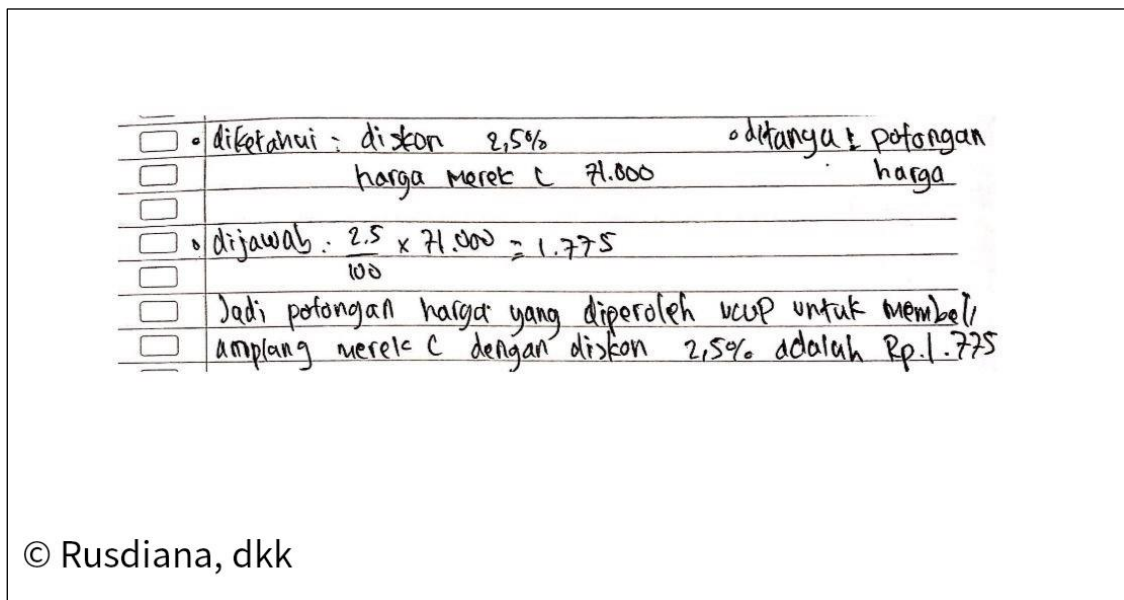 • diketahui : diskon 2,5% • ditanya : potongan
harga merek C 71.000 harga
• dijawab : 2.5/100 x 71.000 = 1.775
Jadi potongan harga yang diperoleh ucup untuk membeli
amplang merek C dengan diskon 2,5% adalah Rp.1.775
© Rusdiana, dkk